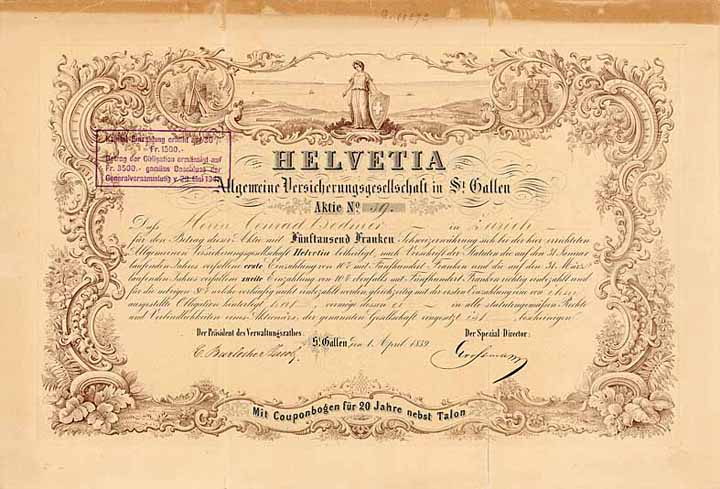 HELVETIA
Allgemeine Versicherungsgesellschaft in St. Gallen
Aktie No
Daß Herr Conrad in Zürich
für den Betrag dieser Aktie mit Fünftausend Franken Schweizerwährung sich bei der hier errichteten
Allgemeinen Versicherungsgesellschaft Helvetia betheiligt, nach Vorschrift der Statuten die auf den 31. Januar
laufenden Jahres verfallene erste Einzahlung von 10% mit Fünfhundert Franken und die auf den 31. März
laufenden Jahres verfallene zweite Einzahlung von 10% ebenfalls mit Fünfhundert Franken richtig einbezahlt und
für die übrigen 8/10 welche vorläufig nicht einbezahlt werden, gleichzeitig mit der ersten Einzahlung eine von
ausgestellte Obligation hinterlegt hat vermöge dessen in alle statutengemäßen Rechte
und Verbindlichkeiten eines Aktionärs der genannten Gesellschaft eingesetzt ist bescheinigen
Der Präsident des Verwaltungsrathes:
St. Gallen, den 1. April 1859
Der Spezial-Director:
Grossmann
Mit Couponbogen für 20 Jahre nebst Talon
Einzahlung erhöht auf 30
Fr. 1500.-
Betrag der Obligation ermässigt auf
Fr. 3500.- gemäss Beschluss der
Generalversammlung v. 29. Mai